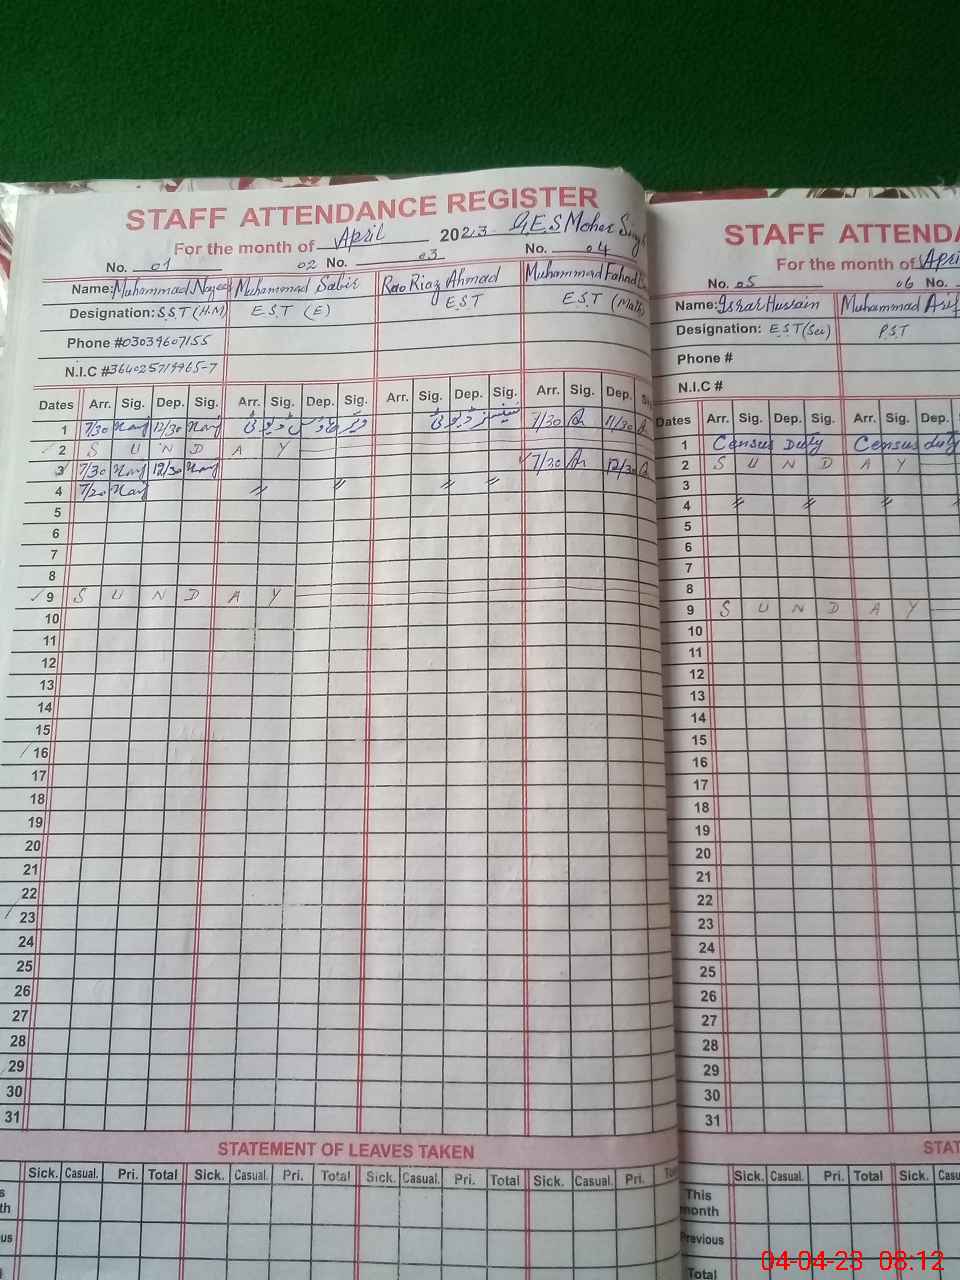 STAFF ATTENDANCE REGISTER
For the month of April 2023 G.E.S Moher Singh
No. 01 02 No. 03 No. 04
Name: Muhammad Muhammad Sabir Rao Riaz Ahmad Muhammad Fahad
Designation: S.S.T (H.M) E.S.T (E) E.S.T E.S.T (Math)
Phone #03039607155
N.I.C #
Dates Arr. Sig. Dep. Sig. Arr. Sig. Dep. Sig. Arr. Sig. Dep. Sig. Arr. Sig. Dep.
1 7/30 12/30 ڈیوٹی 7/30 11/30
2 S U N D A Y
3 7/30 12/30 7/30 12/30
4 7/20 〃 〃 〃 〃
5
6
7
8
9 S U N D A Y
10
11
12
13
14
15
16
17
18
19
20
21
22
23
24
25
26
27
28
29
30
31
STATEMENT OF LEAVES TAKEN
Sick. Casual. Pri. Total Sick. Casual. Pri. Total Sick. Casual. Pri. Total Sick. Casual. Pri.
STAFF ATTENDA
For the month of Apri
No. 05 06 No.
Name: Israr Hussain Muhammad Arif
Designation: E.S.T (Sci) P.S.T
Phone #
N.I.C #
Dates Arr. Sig. Dep. Sig. Arr. Sig. Dep.
1 Census Duty Census duty
2 S U N D A Y
3
4 〃 〃 〃 〃
5
6
7
8
9 S U N D A Y
10
11
12
13
14
15
16
17
18
19
20
21
22
23
24
25
26
27
28
29
30
31
STAT
Sick. Casual. Pri. Total Sick.
This
month
Previous
Total
04-04-23 08:12